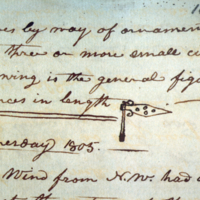 es by way of ornamen
three or more small c
wing is the general figu
nces in length
nesday 1805.
Wind from N.W. had a